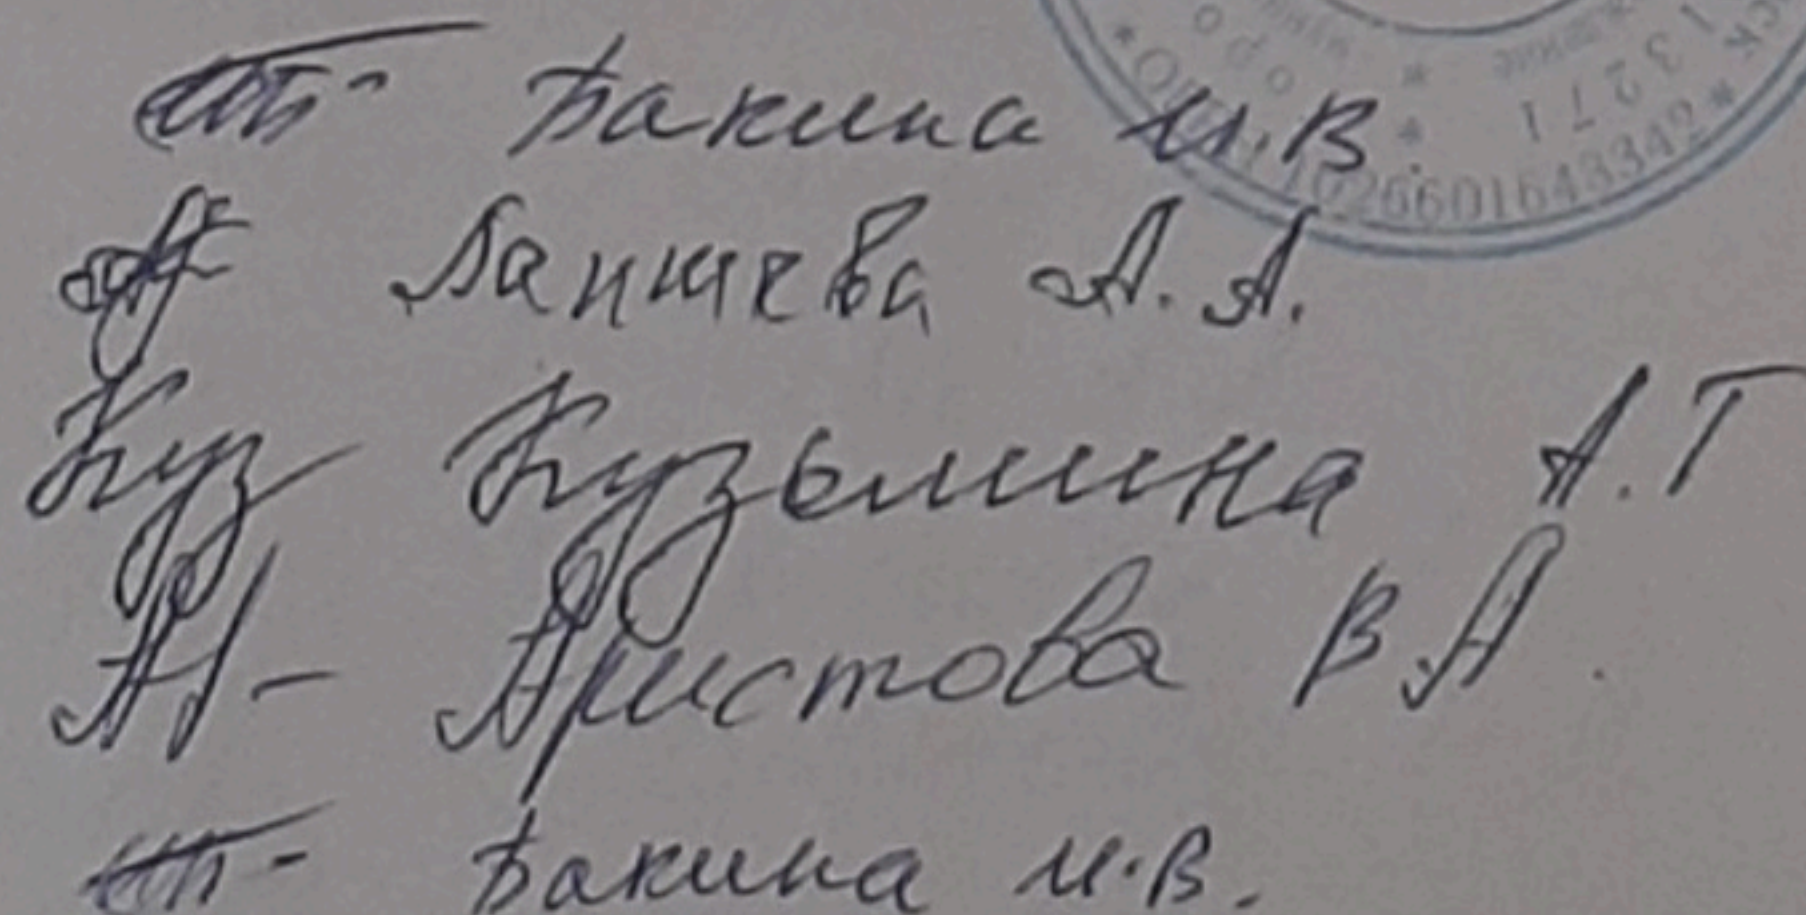 Бакина И.В.
Лапшева А.А.
Куз Кузьмина А.Г
Аристова В А.
Бакина И.В.
1026601643342 *